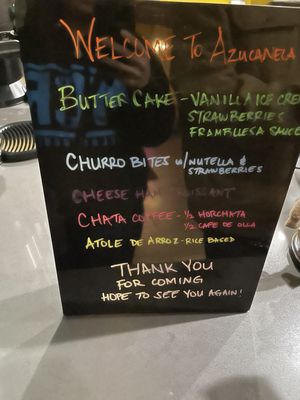 WELCOME TO AZUCANELA
BUTTER CAKE - VANILLA ICE CRE
STRAWBERRIES
FRAMBUESA SAUCE
CHURRO BITES w/ NUTELLA &
STRAWBERRIES
CHEESE HAM CROISSANT
CHATA COFFEE - ½ HORCHATA
½ CAFE DE OLLA
ATOLE DE ARROZ - RICE BASED
THANK YOU
FOR COMING
HOPE TO SEE YOU AGAIN!